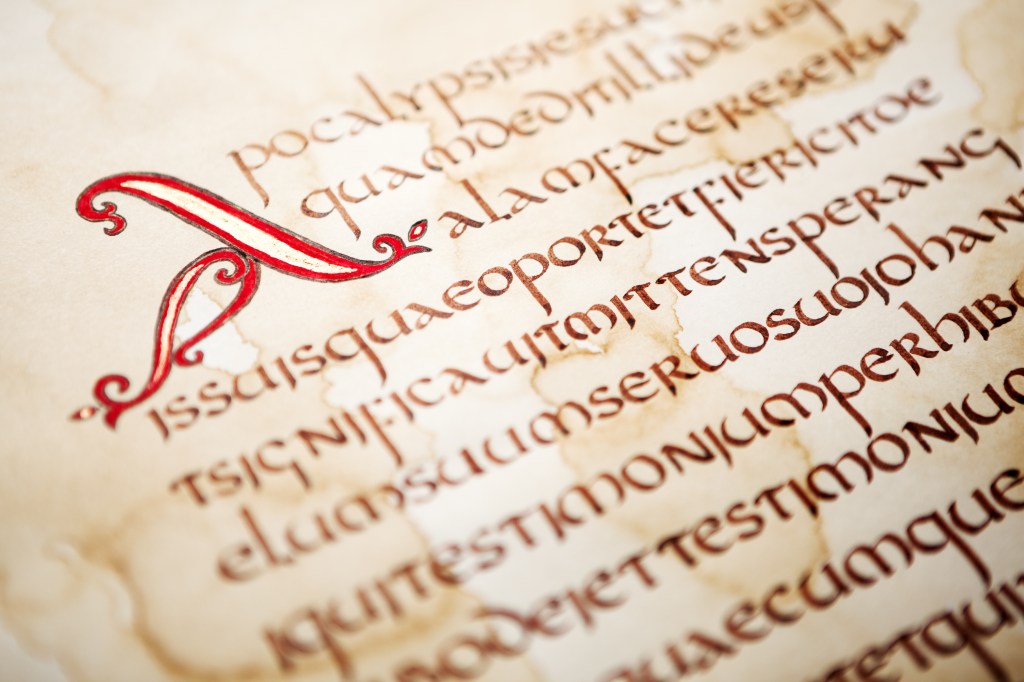 Apocalypsisiesu
quamdeditillideusp
alamfacereseru
issuisquaeoportetfiericitoe
tsignificauitmittensperang
elumsuumseruosuoiohan
iquitestimoniumperhib
bodeiettestimoniu
uaecumque
tetqui